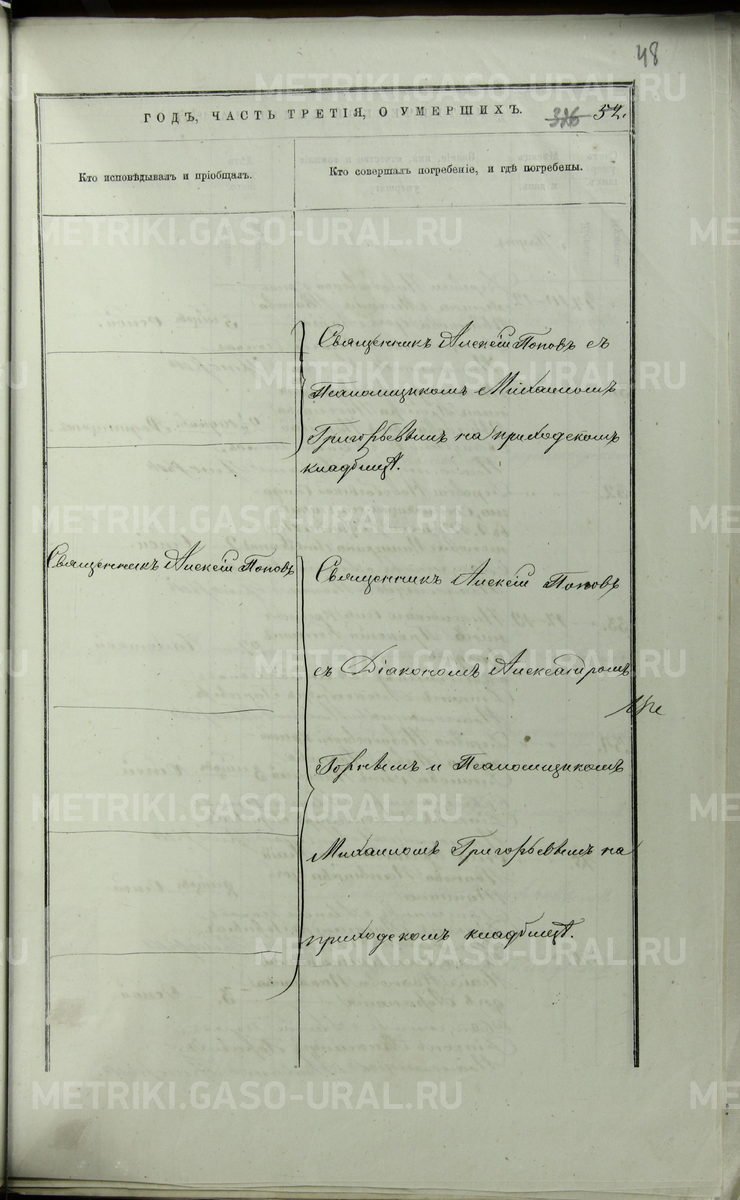 48
ГОДЪ, ЧАСТЬ ТРЕТІЯ, О УМЕРШИХЪ.
326 52.
Кто исповѣдывалъ и пріобщалъ.
Кто совершалъ погребеніе, и гдѣ погребены.
Священникъ Алексій Поповъ съ
Псаломщикомъ Михаиломъ
Григорьевымъ на приходскомъ
кладбищѣ.
Священникъ Алексій Поповъ
Священникъ Алексій Поповъ
съ Діакономъ Александромъ
и Псаломщикомъ
Михаиломъ Григорьевымъ на
приходскомъ кладбищѣ.
METRIKI.GASO-URAL.RU